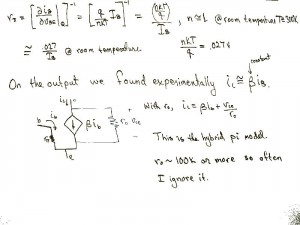 rπ = [∂iB/∂vBE]⁻¹ = [q/nkT IB]⁻¹ = (nkT/q)/IB , n≅1 @ room temperature T≅300K
≅ .027/IB @ room temperature. nkT/q = .027V
constant
On the output we found experimentally ic ≅ β iB.
ic
b ib βib ro vce With ro, ic = βib + vce/ro
This is the hybrid pi model.
ie
ro ~ 100K or more so often
I ignore it.